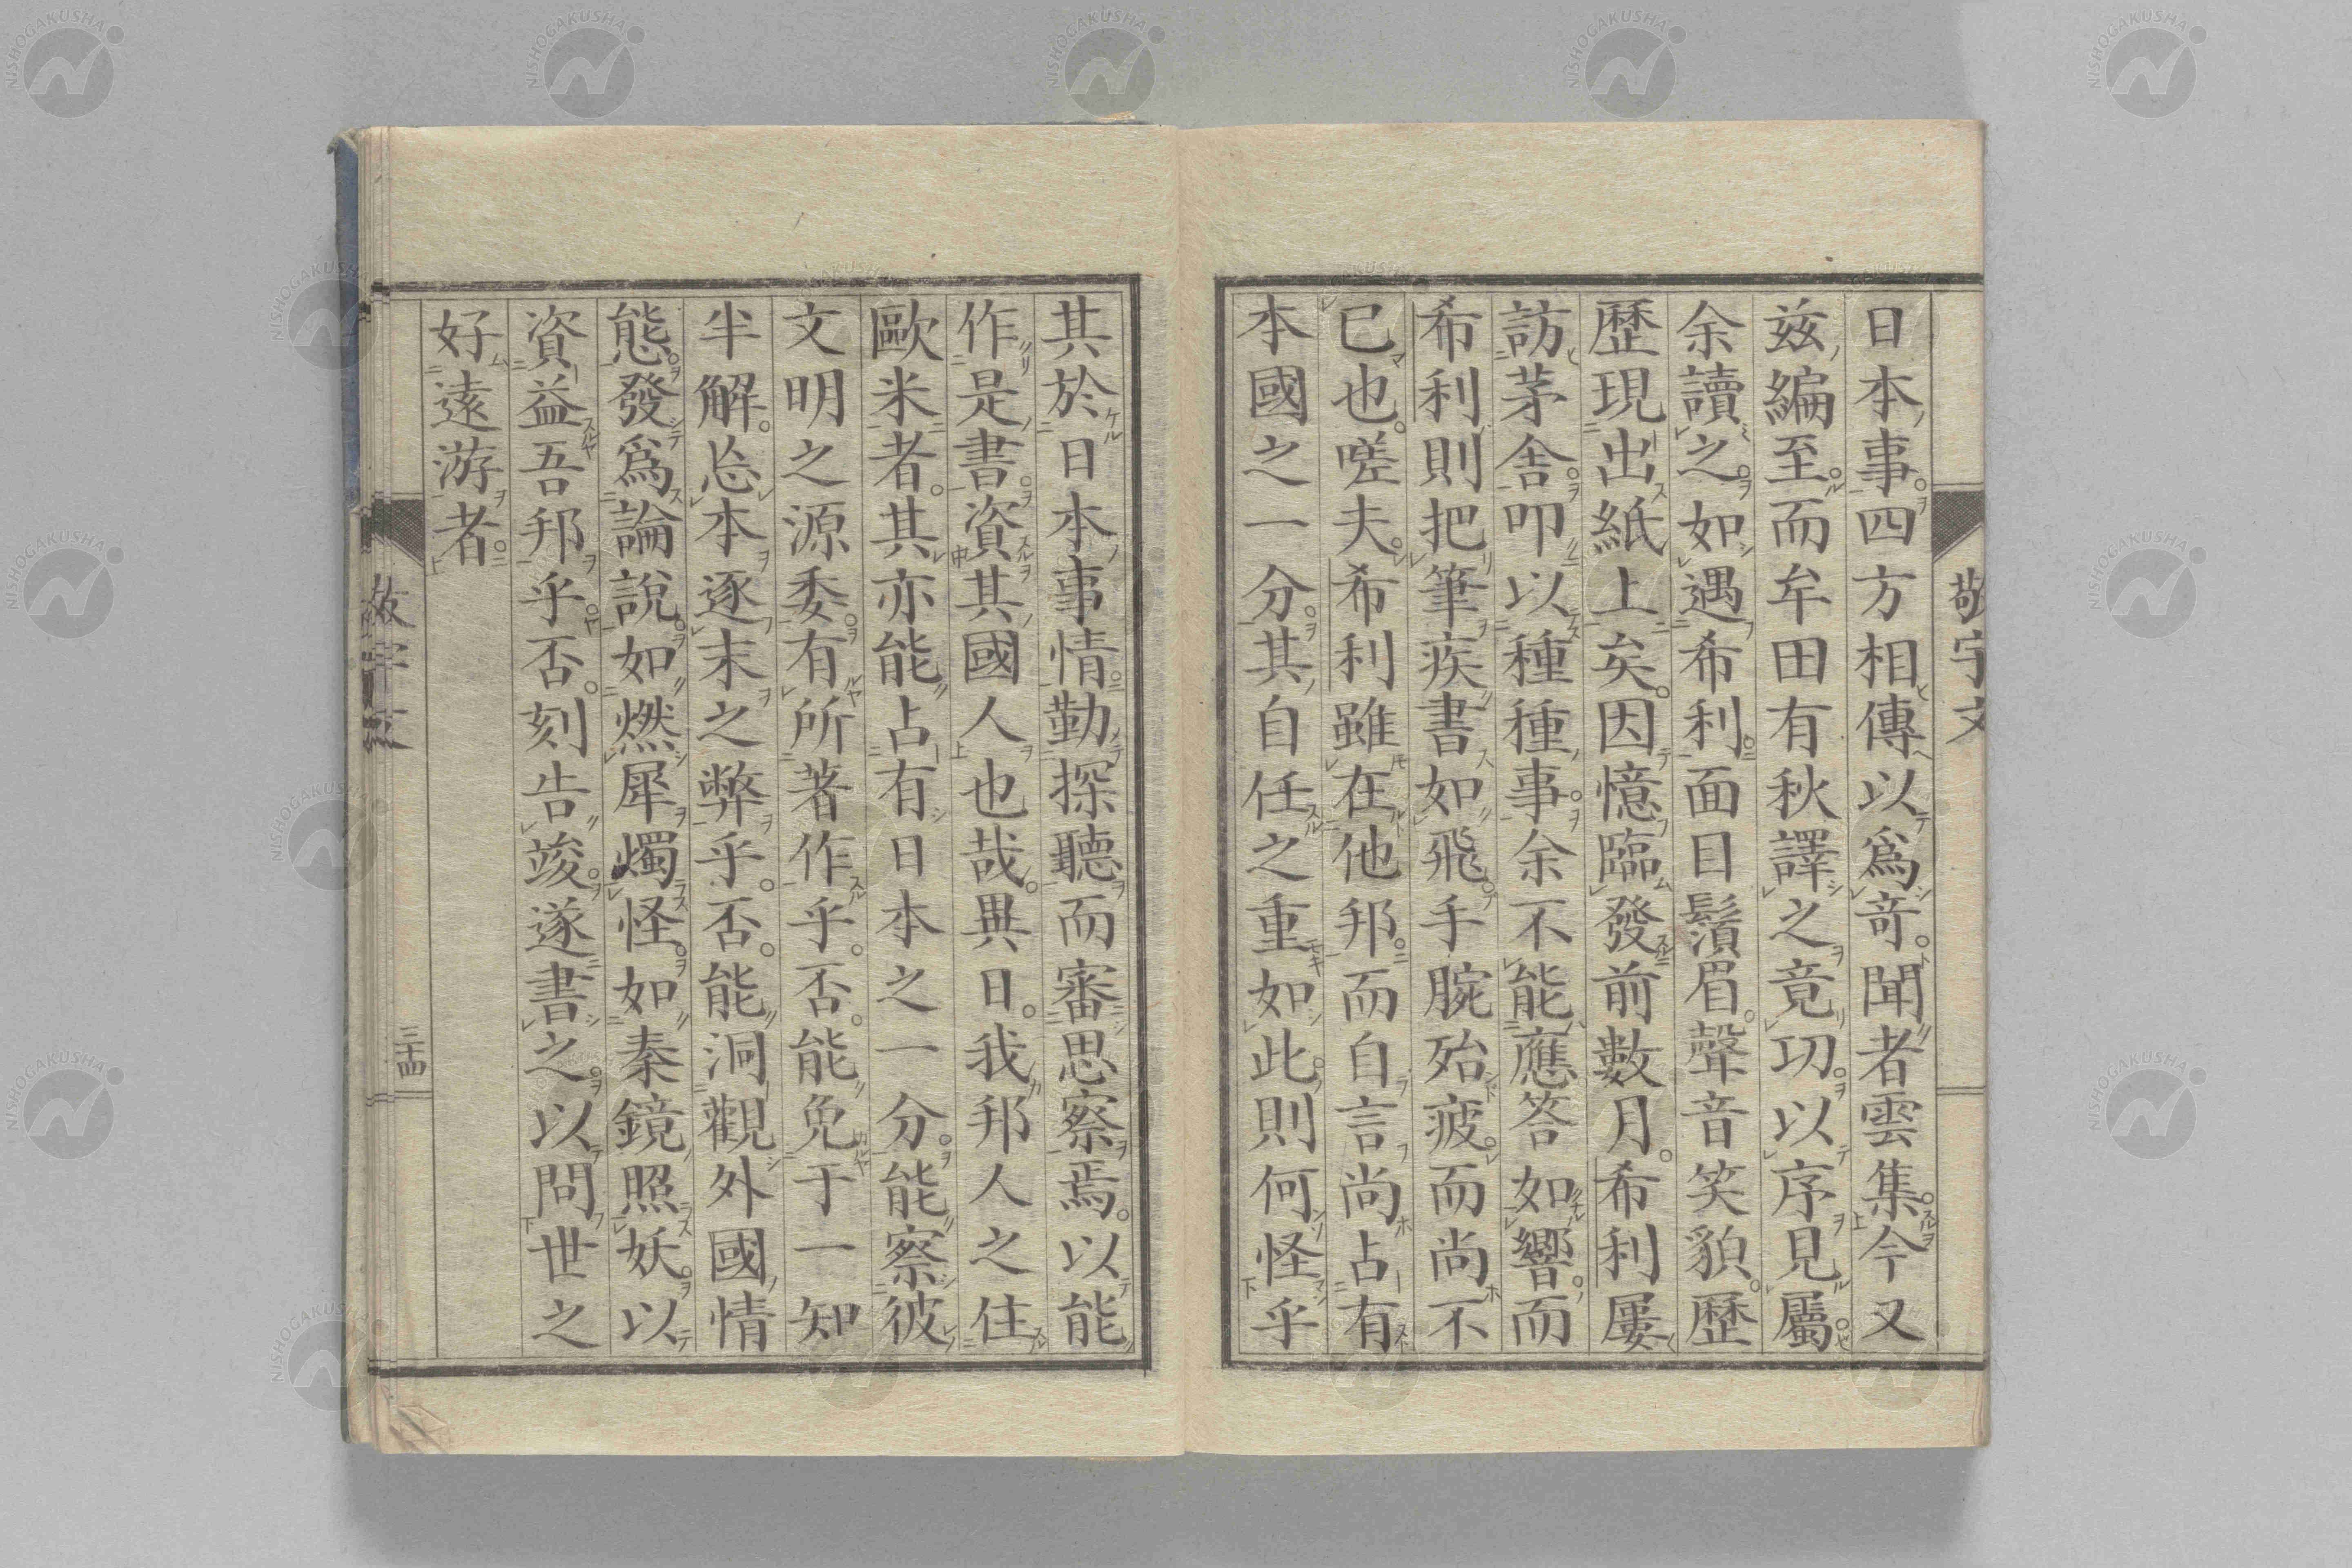 日本事。四方相傳以爲奇。聞者雲集。今又
玆編至。而牟田有秋譯之竟功。以序見屬。
余讀之。如遇希利。面目鬚眉。聲音笑貌。歷
歷現出紙上矣。因憶臨發前數月。希利屢
訪茅舍。叩以種種事。余不能應答如響。而
希利則把筆疾書如飛。手腕殆疲。而尚不
已也。嗟夫。希利雖在他邦。而自言尚占有
本國之一分。其自任之重如此。則何怪乎
其於日本事情。勤探聽而審思察焉。以能
作是書。資其國人也哉。異日。我邦人之住
歐米者。其亦能占有日本之一分。能察彼
文明之源委。有所著作乎。否。能免于一知
半解。忘本逐末之弊乎。否。能洞觀外國情
態。發爲論說。如燃犀燭怪。如秦鏡照妖。以
資益吾邦乎。否。刻告竣。遂書之。以問世之
好遠游者。
敬宇文
敬宇文
三十四
NISHOGAKUSHA